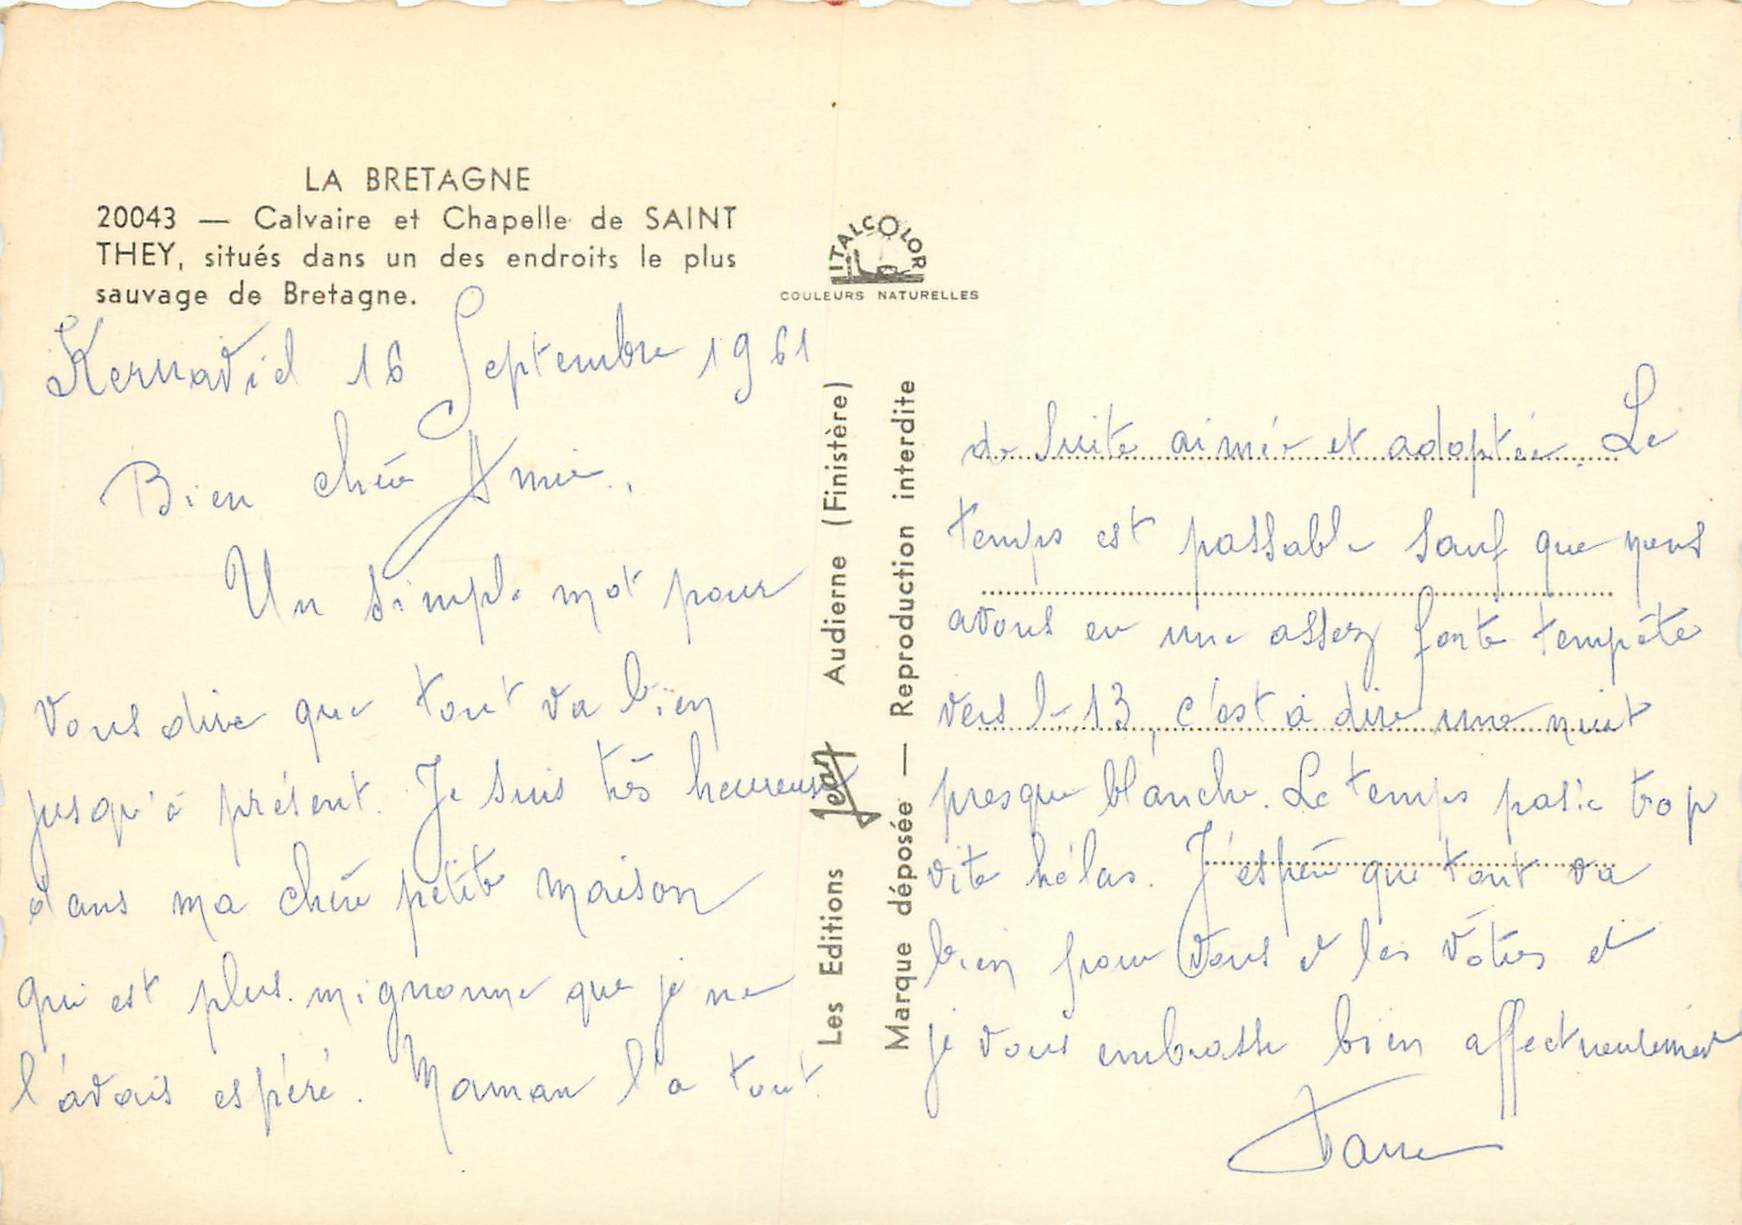 LA BRETAGNE
20043 — Calvaire et Chapelle de SAINT
THEY, situés dans un des endroits le plus
sauvage de Bretagne.
ITALCOLOR
COULEURS NATURELLES
16 Septembre 1961
Bien chère Amie,
Un simple mot pour
vous dire que tout va bien
jusqu'à présent. Je suis très heureuse
dans ma chère petite maison
qui est plus mignonne que je ne
l'avais espéré. Maman l'a tout
Les Editions Jean Audierne (Finistère)
Marque déposée — Reproduction interdite
de suite aimée et adoptée. Le
temps est passable sauf que nous
avons eu une assez forte tempête
vers le 13, c'est à dire une nuit
presque blanche. Le temps passe trop
vite hélas. J'espère que tout va
bien pour vous et les vôtres et
je vous embrasse bien affectueusement